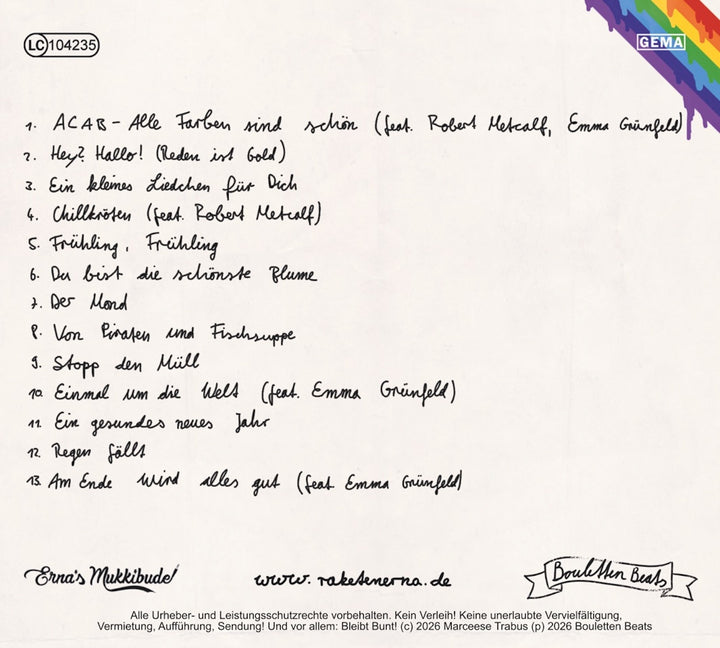 LC 104235
GEMA
1. ACAB - Alle Farben sind schön (feat. Robert Metcalf, Emma Grünfeld)
2. Hey? Hallo! (Reden ist Gold)
3. Ein kleines Liedchen für Dich
4. Chillkröten (feat. Robert Metcalf)
5. Frühling, Frühling
6. Du bist die schönste Blume
7. Der Mond
8. Von Piraten und Fischsuppe
9. Stopp den Müll
10. Einmal um die Welt (feat. Emma Grünfeld)
11. Ein gesundes neues Jahr
12. Regen fällt
13. Am Ende wird alles gut (feat. Emma Grünfeld)
Erna's Mukkibude!
www.raketenerna.de
Bouletten Beats
Alle Urheber- und Leistungsschutzrechte vorbehalten. Kein Verleih! Keine unerlaubte Vervielfältigung,
Vermietung, Aufführung, Sendung! Und vor allem: Bleibt Bunt! (c) 2026 Marceese Trabus (p) 2026 Bouletten Beats